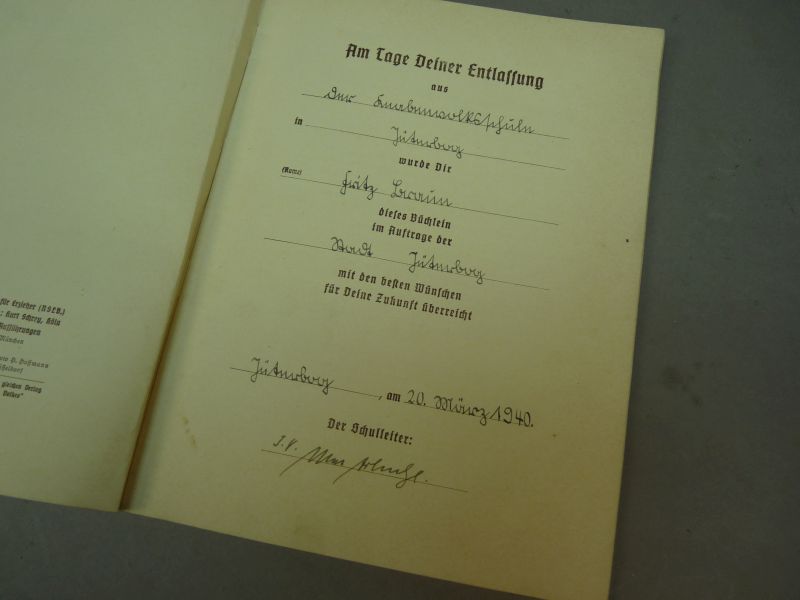 für Erzieher (NSLB.)
: Kurt Schrey, Köln
Ausführungen
München
Hoffmann
Düsseldorf
gleichen Verlag
Volkes"
Am Tage Deiner Entlassung
aus
Der Knabenvolksschule
in Jüterbog
wurde Dir
(Name) Fritz Braun
dieses Büchlein
im Auftrage der
Stadt Jüterbog
mit den besten Wünschen
für Deine Zukunft überreicht
Jüterbog, am 20. März 1940.
Der Schulleiter:
I.V.